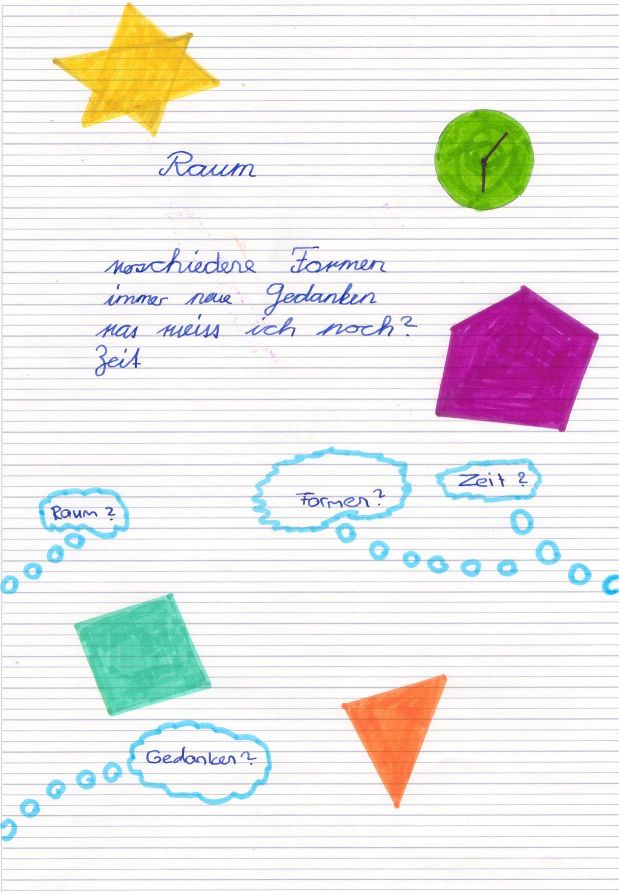 Raum
verschiedene Formen
immer neue Gedanken
was weiss ich noch?
Zeit
Zeit?
Formen?
Raum?
Gedanken?